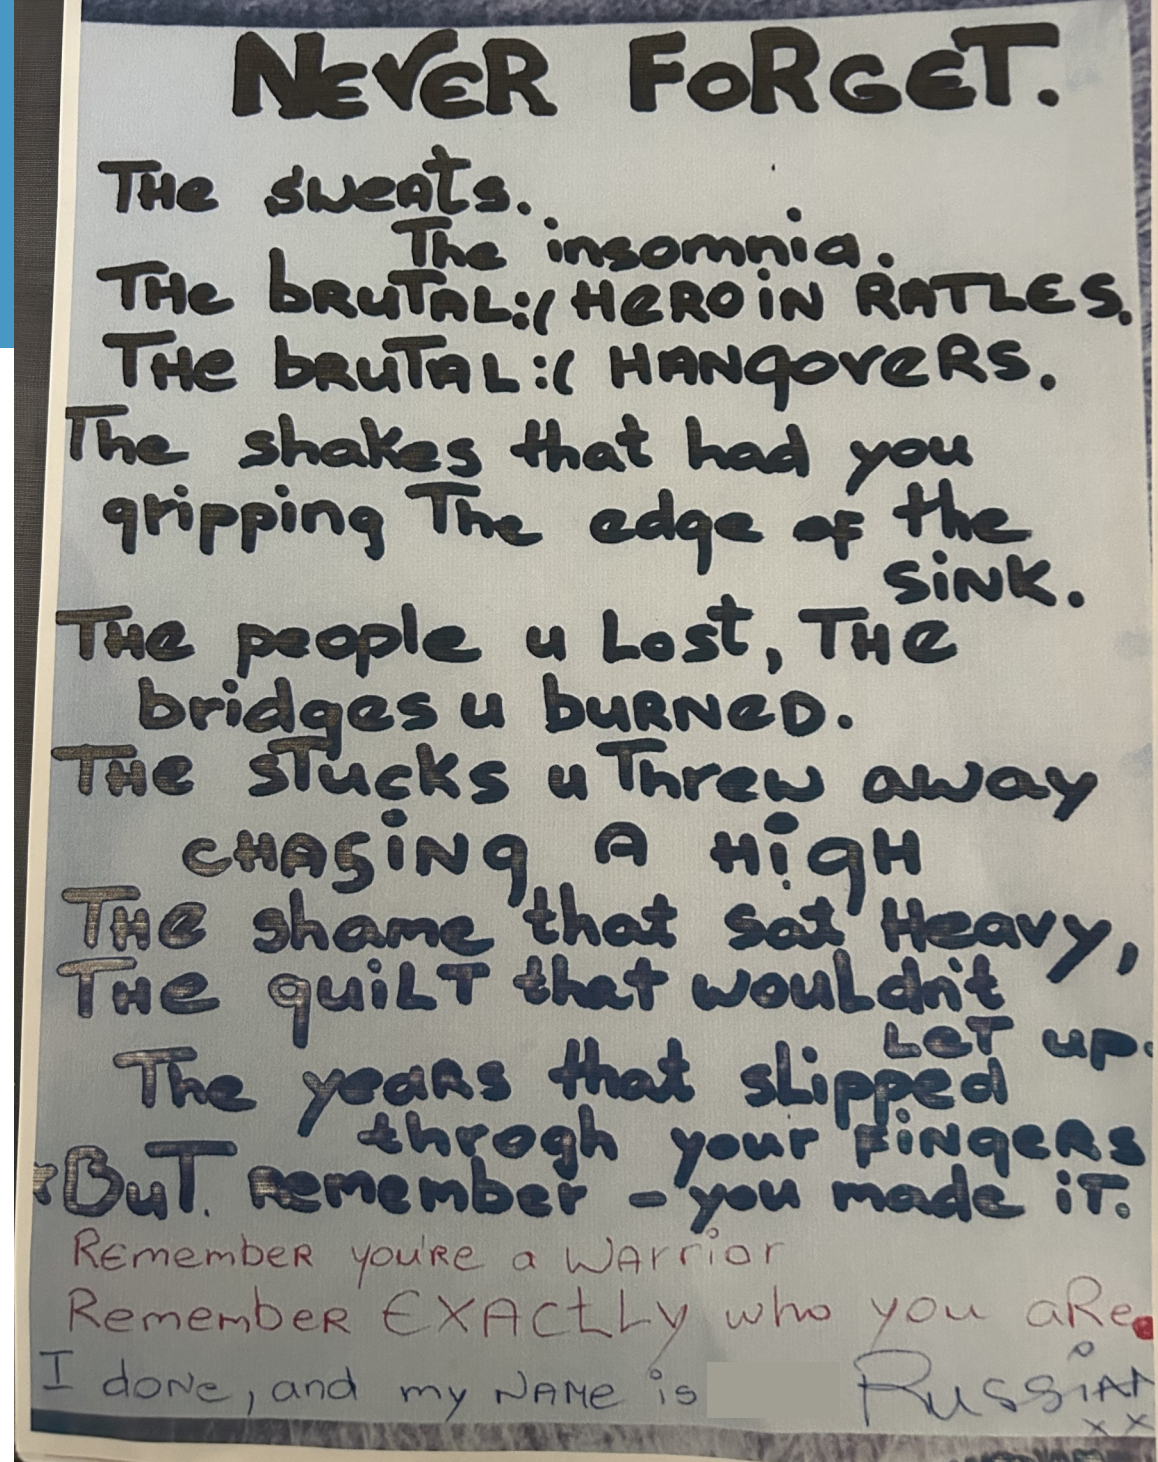 NEVER FORGET.
THe sweATs.
The insomnia.
THe bRUTAL:( HEROiN RATLES.
THe bRUTAL:( HANgoveRS.
The shakes that had you
gripping The edge of the
SiNK.
THe people u Lost, THe
bridges u buRNeD.
THe sTucks u Threw away
CHASiNg A HigH
THe shame that sat Heavy,
THe guiLT that wouLdn't
LeT up.
The yeaRs that sLipped
throgh your FiNgeRs
*BuT. Remember - you made iT.
REmembeR you're a WArrior
RemembeR EXACtLLy who you aRe.
I done, and my NAMe is
RussiAN
xx